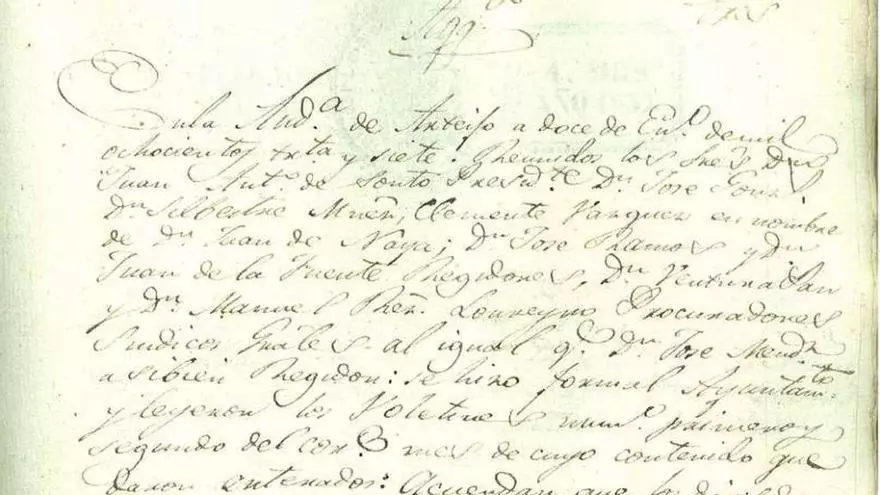 En la Aud.ª de Arteijo a doce de En.º de mil
ochocientos trt.ª y siete. Reunidos los Sres Dn
Juan Ant.º de Souto Presid.te Dn Jose
Dn Silbestre Clemente Vazquez en nombre
de Dn Juan de Naya; Dn Jose Ramos y Dn
Juan de la Fuente Regidores, Dn Ventura Pan
y Dn Manuel Loureyro Procuradores
Sindicos Grales al igual q.e Dn Jose
asibien Regidor: se hizo formal Ayuntam.to
y leyeron los Voletines num.º primero y
segundo del cor.te mes de cuyo contenido que
daron enterados: Acuerdan que los